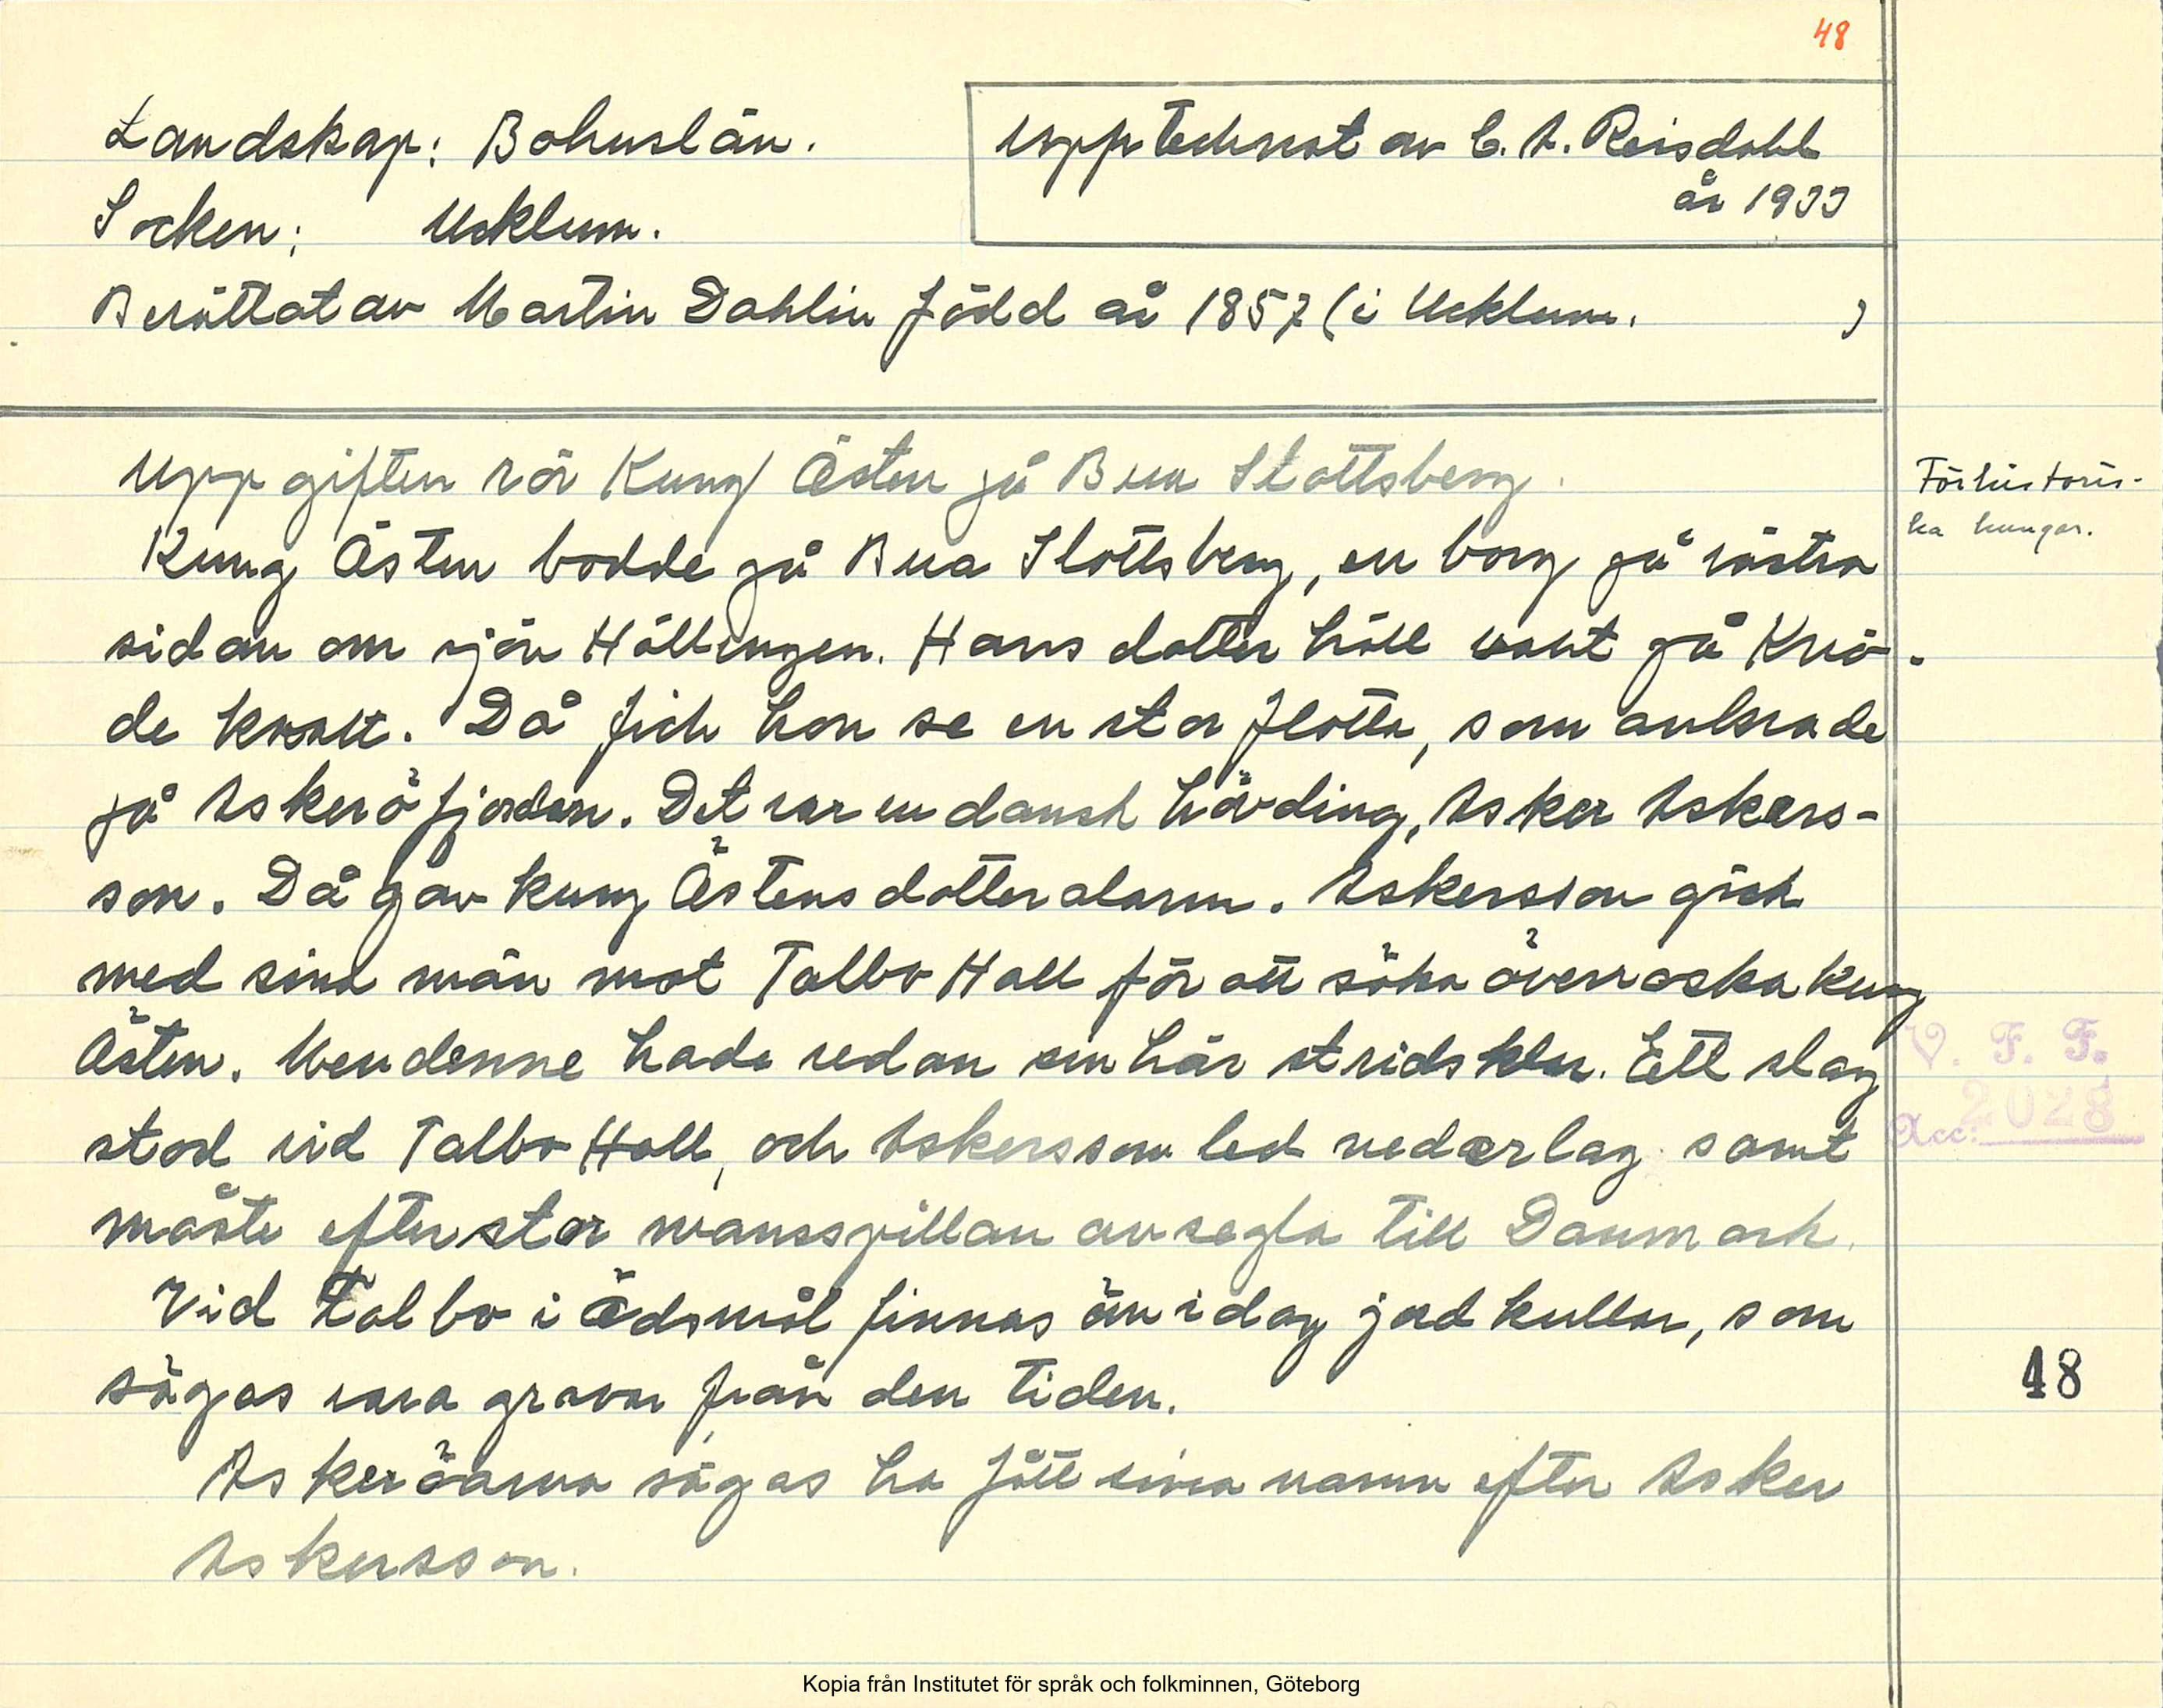 48
Landskap: Bohuslän.
Upptecknat av C. A. Reisdahl
år 1933
Socken: Ucklum.
Berättat av Martin Dahlin född år 1857 (i Ucklum. )
Uppgiften rör Kung Östen på Bua Slottsberg.
Förhistoris-
ka kungar.
Kung Östen bodde på Bua Slottsberg, en borg på västra
sidan om sjön Hällungen. Hans dotter höll vakt på Knö-
de knatt. Då fick hon se en stor flotta, som ankrade
på Askeröfjorden. Det var en dansk hövding, Asker Askers-
son. Då gav kung Östens dotter alarm. Askersson gick
med sina män mot Talbo Hall för att söka överraska kung
Östen. Men denne hade redan sin här stridsklar. Ett slag
stod vid Talbo Hall, och Askersson led nederlag samt
måste efter stor manspillan avsegla till Danmark.
Vid Talbo i Ödsmål finnas än idag jordkullar, som
sägas vara gravar från den tiden.
Askeröarna sägas ha fått sina namn efter Asker
Askersson.
V. F. F.
Acc. 2028
48
Kopia från Institutet för språk och folkminnen, Göteborg